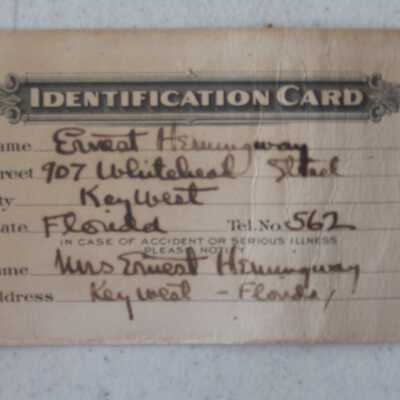 IDENTIFICATION CARD
ame Ernest Hemingway
treet 907 Whitehead Street
ty Key West
tate Florida Tel. No. 562
IN CASE OF ACCIDENT OR SERIOUS ILLNESS
PLEASE NOTIFY
ame Mrs Ernest Hemingway
ddress Key West - Florida